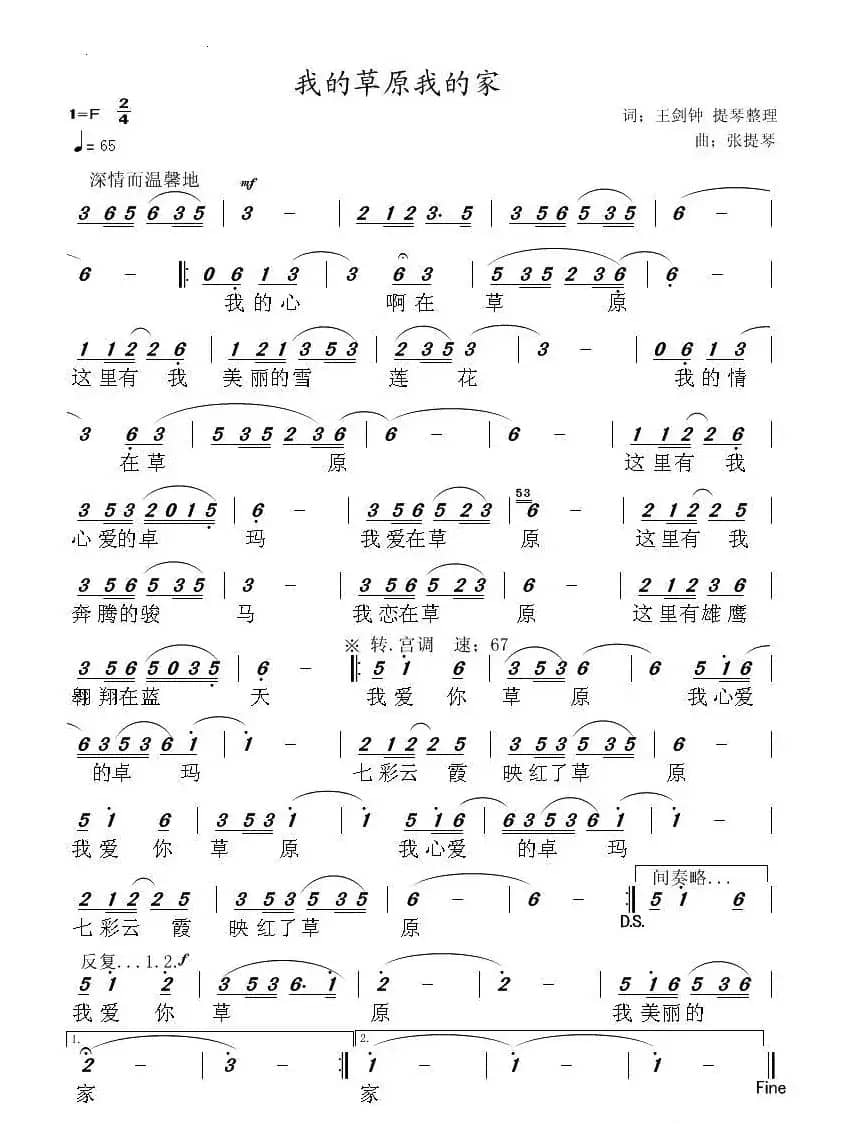 我的草原我的家
1=F 2/4
词：王剑钟 提琴整理
曲：张提琴
♩= 65
深情而温馨地 mf
3 6 5 6 3 5 | 3 － | 2 1 2 3· 5 | 3 5 6 5 3 5 | 6 －
6 － 𝄆 0 6 1 3 | 3 6 3 | 5 3 5 2 3 6 | 6 － |
我 的 心 啊 在 草 原
1 1 2 2 6 | 1 2 1 3 5 3 | 2 3 5 3 | 3 － | 0 6 1 3
这 里 有 我 美 丽 的 雪 莲 花 我 的 情
3 6 3 | 5 3 5 2 3 6 | 6 － | 6 － | 1 1 2 2 6 |
在 草 原 这 里 有 我
3 5 3 2 0 1 5 | 6 － | 3 5 6 5 2 3 | 53 6 － | 2 1 2 2 5 |
心 爱 的 卓 玛 我 爱 在 草 原 这 里 有 我
3 5 6 5 3 5 | 6 － | 3 5 6 5 2 3 | 6 － | 2 1 2 3 6 |
奔 腾 的 骏 马 我 恋 在 草 原 这 里 有 雄 鹰
※ 转.宫调 速：67
3 5 6 5 0 3 5 | 6 － 𝄆 5 1 6 | 3 5 3 5 | 6 － | 5 1 6
翱 翔 在 蓝 天 我 爱 你 草 原 我 心 爱
6 3 5 3 6 1 | 1 － | 2 1 2 2 5 | 3 5 3 5 3 5 | 6 － |
的 卓 玛 七 彩 云 霞 映 红 了 草 原
5 1 6 | 3 5 3 1 | 1 － | 5 1 6 | 6 3 5 3 6 1 | 1 － |
我 爱 你 草 原 我 心 爱 的 卓 玛
间奏略...
2 1 2 2 5 | 3 5 3 5 3 5 | 6 － | 6 － 𝄇 5 1 6 |
D.S.
七 彩 云 霞 映 红 了 草 原
反复...1.2. f
5 1 2 | 3 5 3 5· 1 | 2 － | 2 － | 5 1 6 5 3 6 |
我 爱 你 草 原 我 美 丽 的
1. 2.
2 － | 3 － 𝄇 1 － | 1 － | 1 － ‖
家 家
Fine